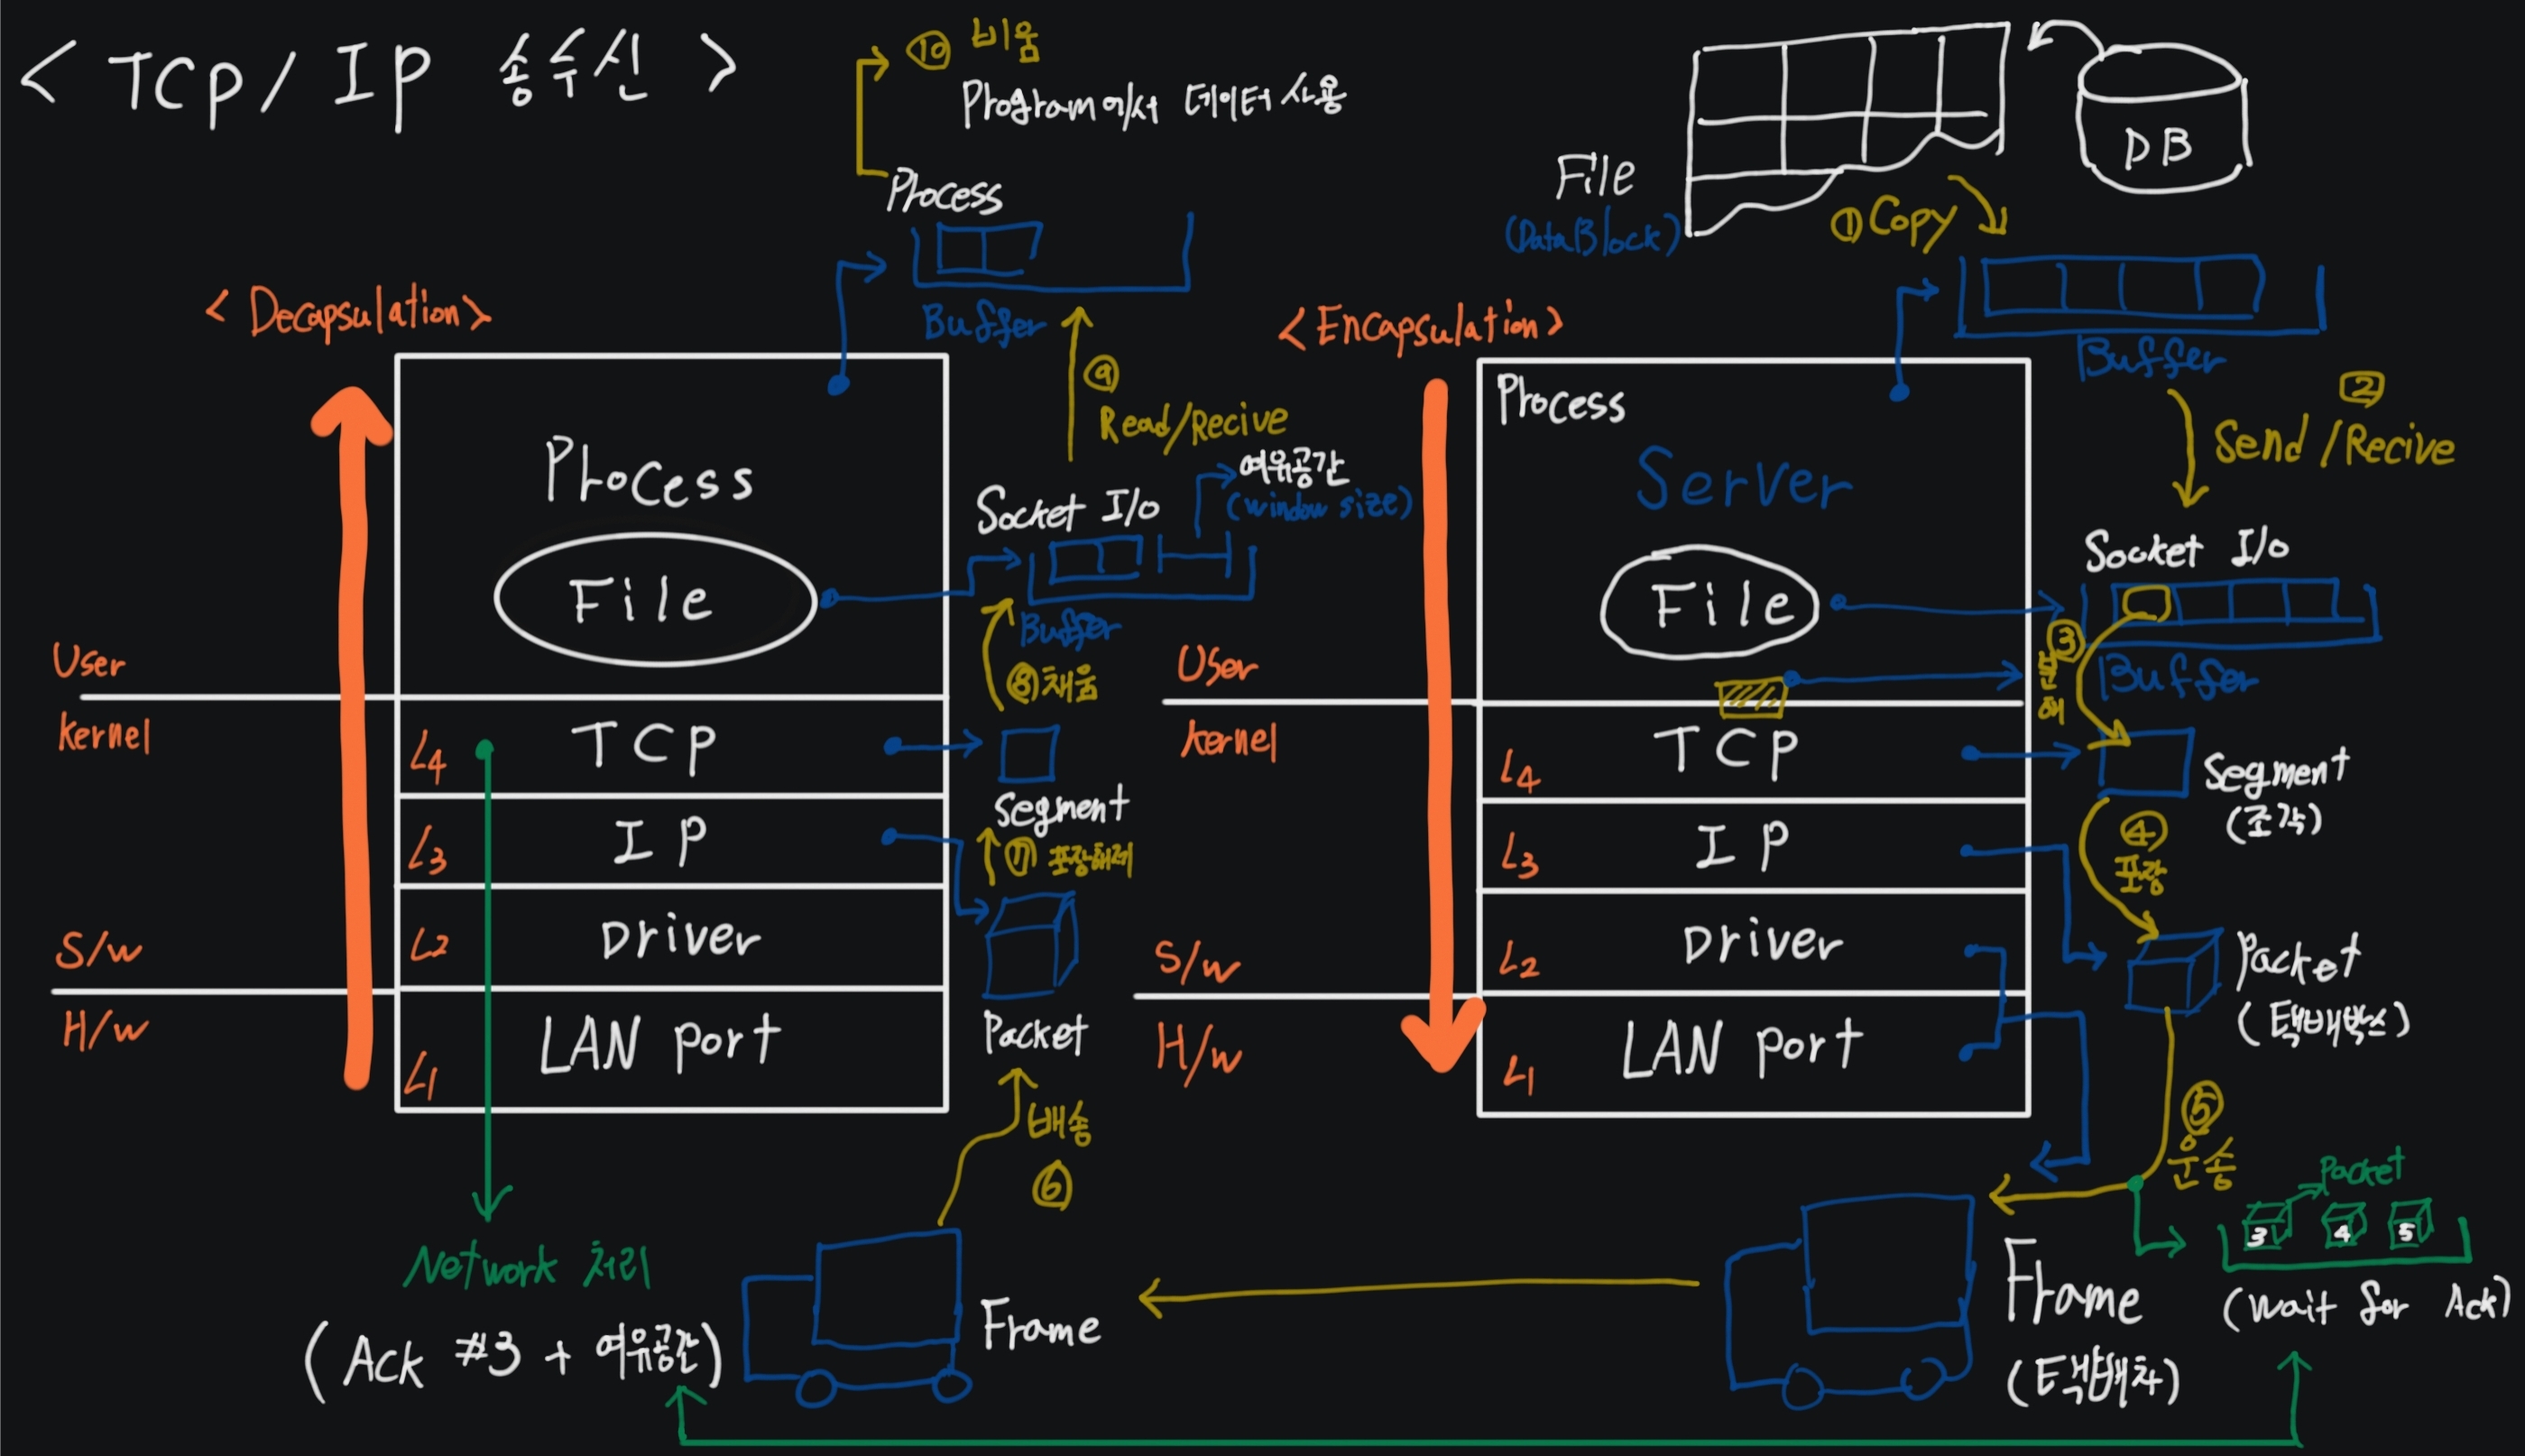 < TCP/IP 송수신 >
⑩ 비움
Program에서 데이터 사용
Process
Buffer
< Decapsulation >
⑨
Read/Recive
Process
File
Socket I/O
여유공간
(window size)
Buffer
⑧ 채움
User
Kernel
L4 TCP
Segment
L3 IP
⑦ 포장해제
L2 Driver
S/W
H/W
L1 LAN port
Packet
배송
⑥
Network 처리
(Ack #3 + 여유공간)
Frame
DB
File
(Data Block)
① Copy
Buffer
< Encapsulation >
②
Send/Recive
Process
Server
File
Socket I/O
Buffer
③
분해
User
Kernel
L4 TCP
Segment
(조각)
L3 IP
④
포장
L2 Driver
Packet
(택배박스)
S/W
H/W
L1 LAN port
⑤
운송
Packet
3 4 5
(Wait for Ack)
Frame
(택배차)